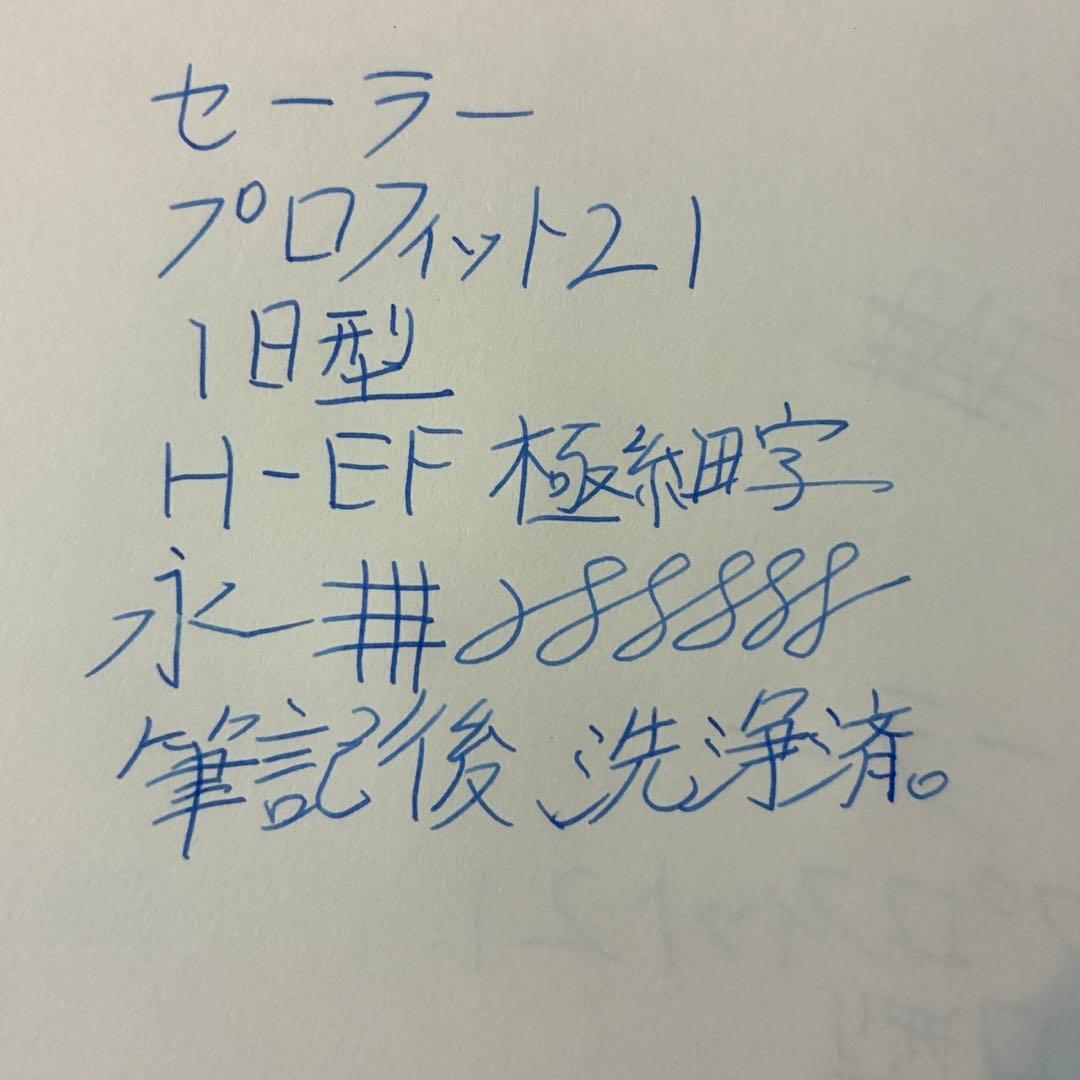 セーラー
プロフィット21
旧型
H-EF 極細字
永
筆記後 洗浄済。